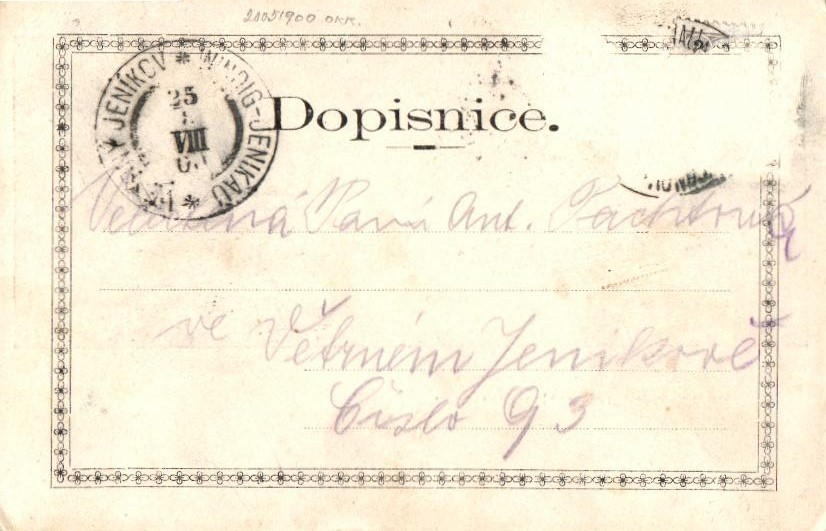 21051900 OKR.
JENÍKOV * WINDIG-JENIKAU *
25
VIII
Dopisnice.
Paní Ant.
ve Větrném Jeníkově
Číslo 93